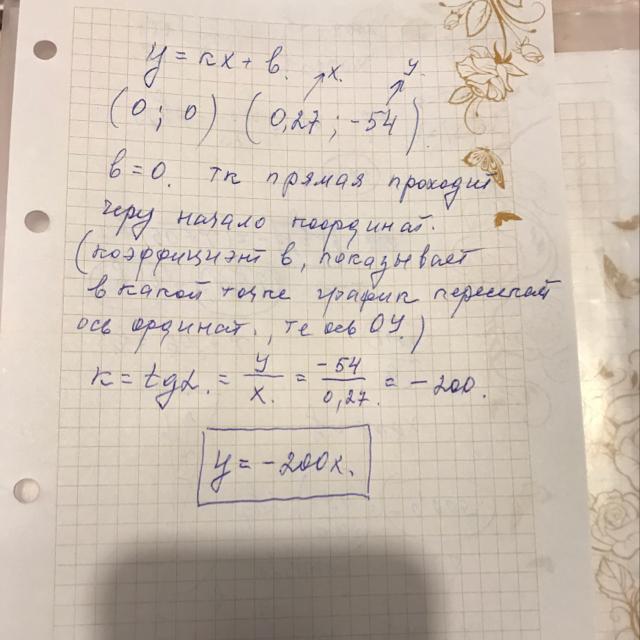 y = кx + в.
x. y.
(0 ; 0) (0,27 ; -54)
в = 0. тк прямая проходит
через начало координат.
(коэффициент в, показывает
в какой точке график пересекает
ось ординат, те ось OY.)
к = tgα. = y/x. = -54/0,27. = -200.
y = -200x.